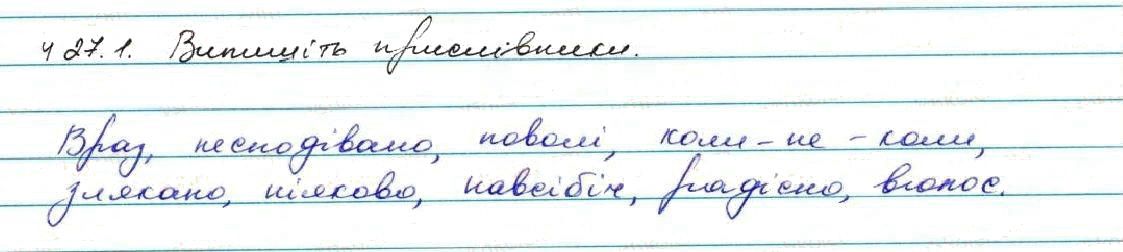 427.1. Випишіть прислівники.
Враз, несподівано, поволі, коли-не-коли,
злякано, ніяково, навсібіч, радісно, вголос.